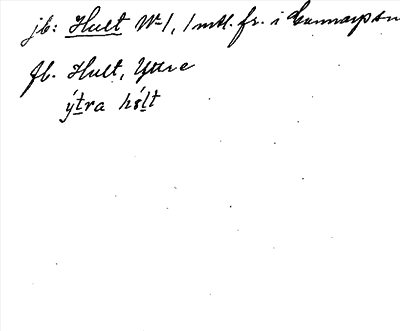 jb: Hult Nº 1, 1 mtl. fr. i Gunnarp sn
fb. Hult, Yttre
ýtra hólt